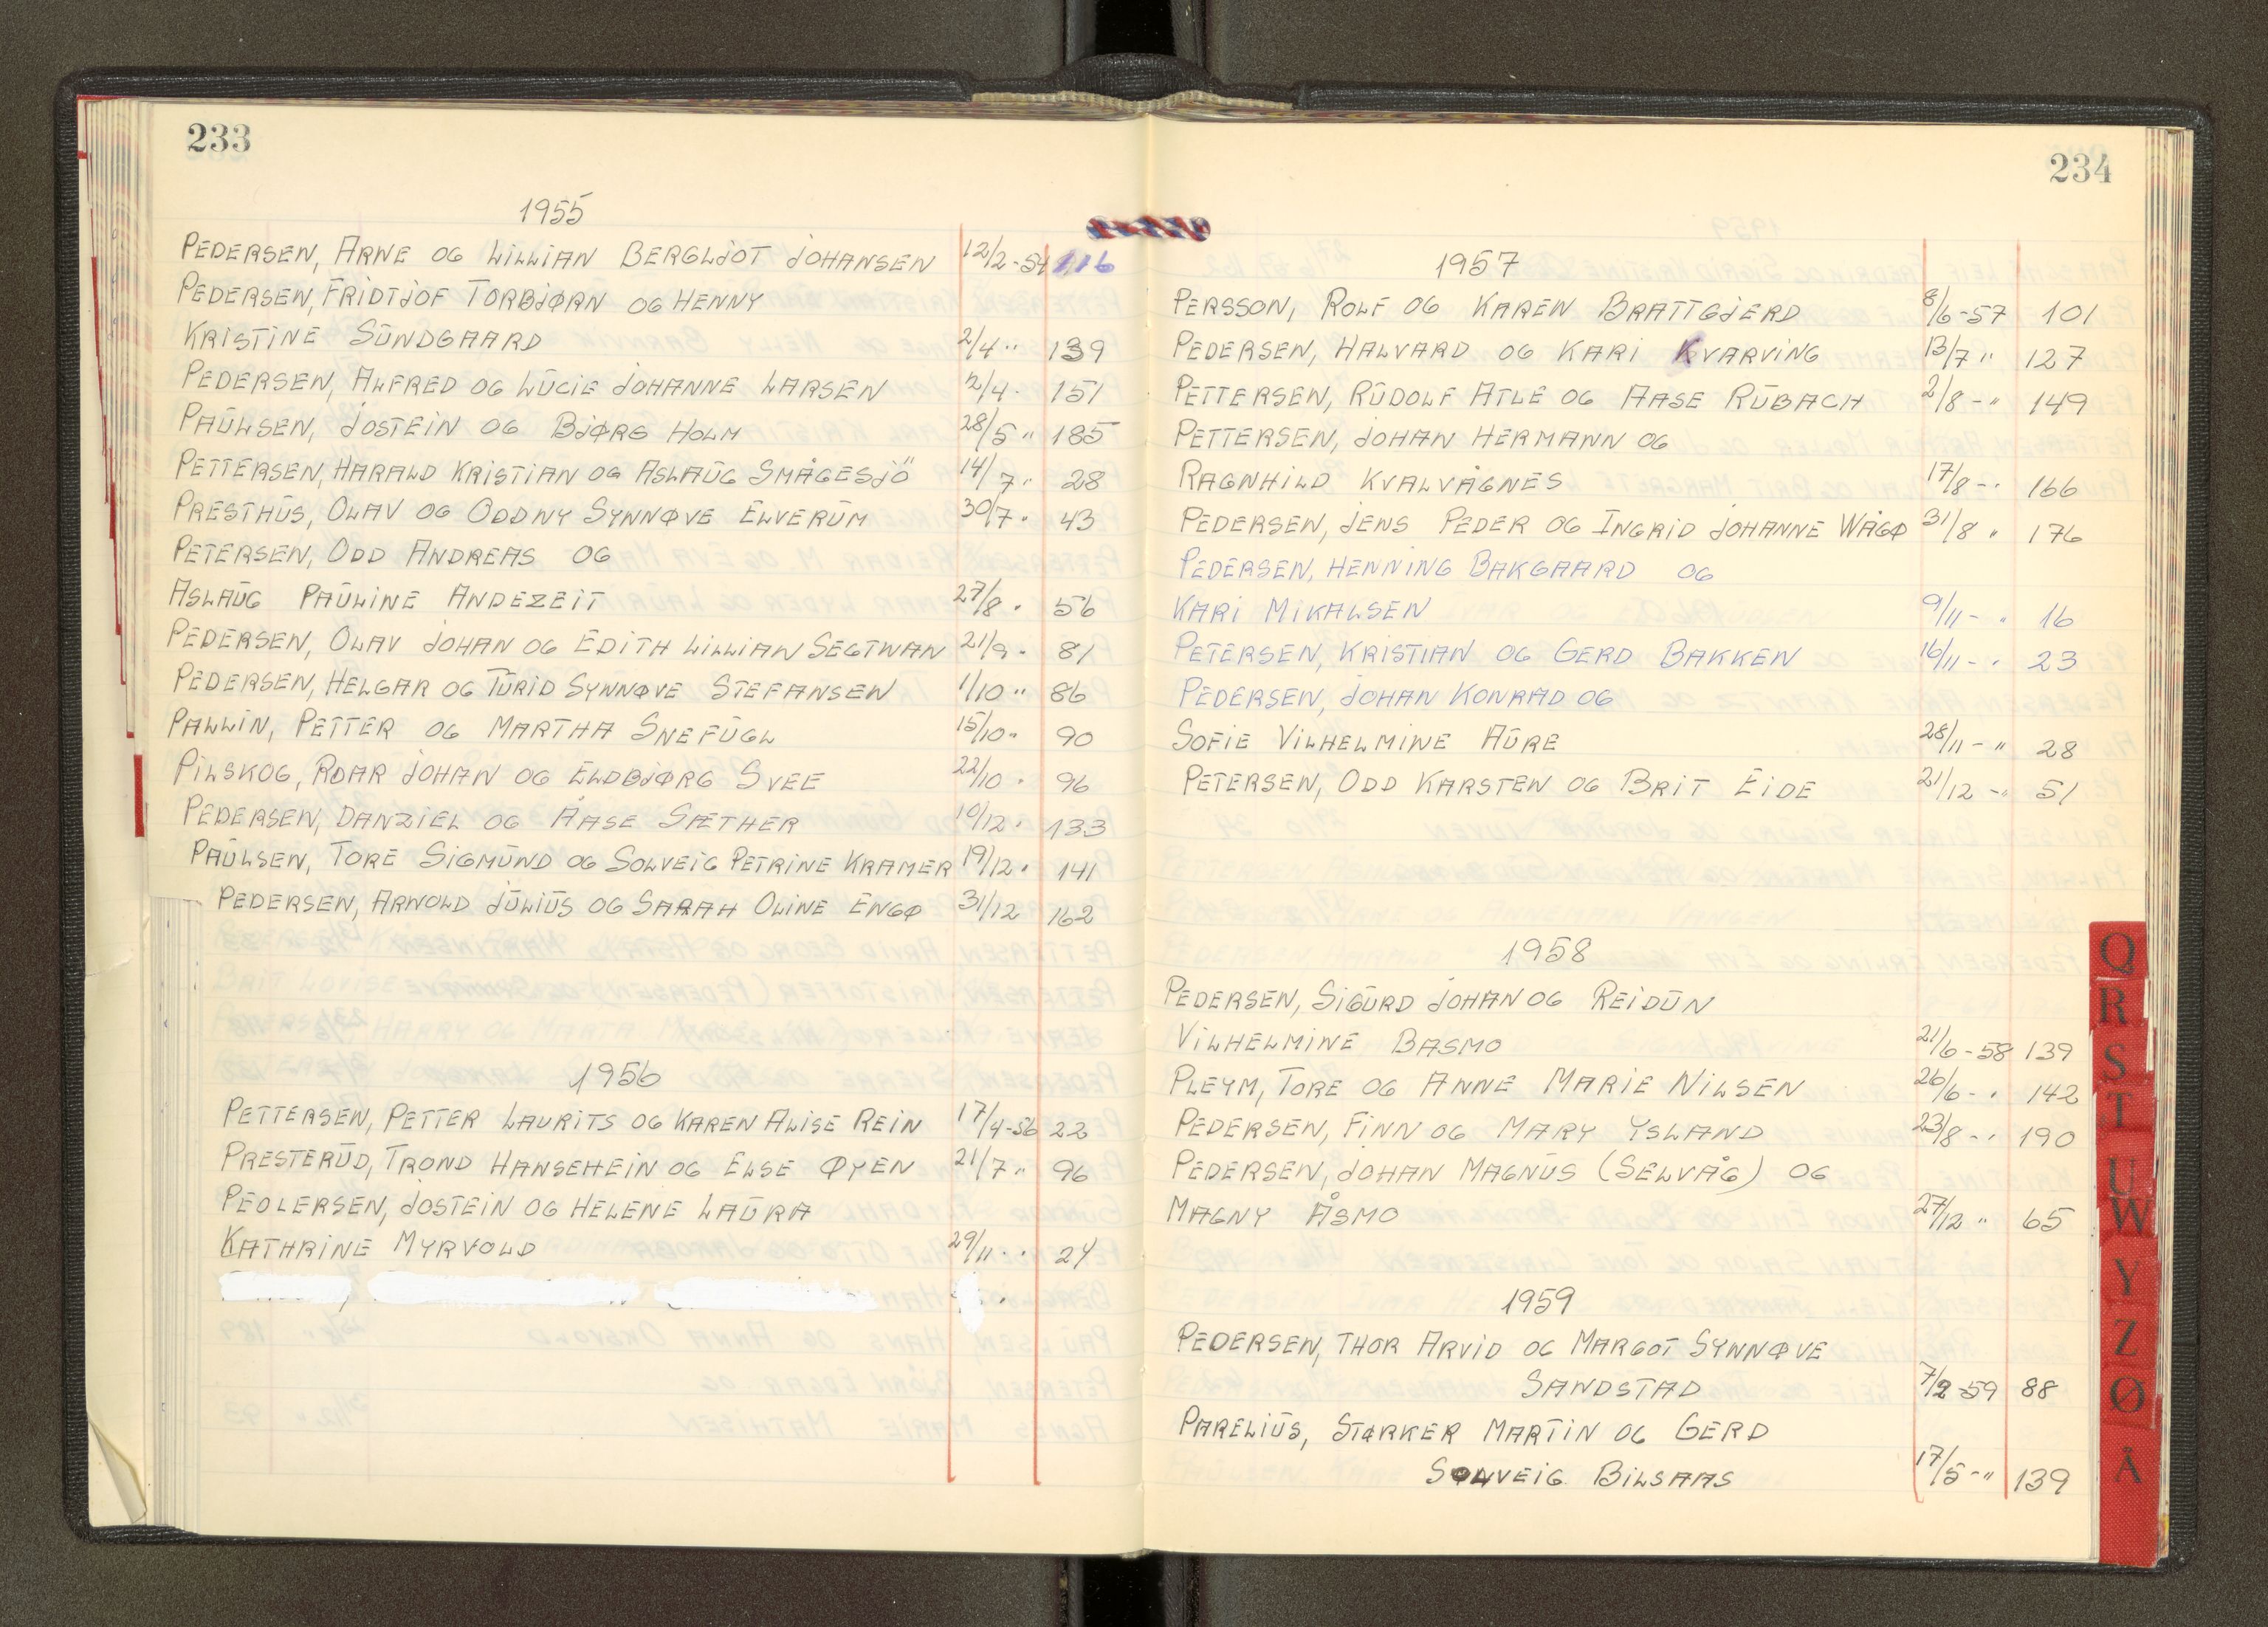 233
1955
PEDERSEN, ARNE OG LILLIAN BERGLJOT JOHANSEN 12/2-54 116
PEDERSEN, FRIDTJOF TORBJØRN OG HENNY
KRISTINE SUNDGAARD 2/4 " 139
PEDERSEN, ALFRED OG LUCIE JOHANNE LARSEN 2/4 . 151
PAULSEN, JOSTEIN OG BJØRG HOLM 28/5 " 185
PETTERSEN, HARALD KRISTIAN OG ASLAUG SMÅGESJÖ 14/7 " 28
PRESTHUS, OLAV OG ODDNY SYNNØVE ELVERUM 30/7 . 43
PETERSEN, ODD ANDREAS OG
ASLAUG PAULINE ANDEZEIT 27/8 . 56
PEDERSEN, OLAV JOHAN OG EDITH LILLIAN SEGTNAN 21/9 . 81
PEDERSEN, HELGAR OG TURID SYNNØVE STEFANSEN 1/10 " 86
PALLIN, PETTER OG MARTHA SNEFUGL 15/10 " 90
PILSKOG, ROAR JOHAN OG ELDBJØRG SVEE 22/10 . 96
PEDERSEN, DANZIEL OG ÅASE SÆTHER 10/12 . 133
PAULSEN, TORE SIGMUND OG SOLVEIG PETRINE KRAMER 19/12 . 141
PEDERSEN, ARNOLD JULIUS OG SARAH OLINE ENGØ 31/12 162
1956
PETTERSEN, PETTER LAURITS OG KAREN ALISE REIN 17/4-56 22
PRESTERUD, TROND HANSEHEIN OG ELSE ØYEN 21/7 " 96
PEOLERSEN, JOSTEIN OG HELENE LAURA
KATHRINE MYRVOLD 29/11 . . 24
234
1957
PERSSON, ROLF OG KAREN BRATTGJERD 8/6-57 101
PEDERSEN, HALVARD OG KARI KVARVING 13/7 " 127
PETTERSEN, RUDOLF ATLE OG AASE RUBACH 2/8 - " 149
PETTERSEN, JOHAN HERMANN OG
RAGNHILD KVALVÅGNES 17/8 - . 166
PEDERSEN, JENS PEDER OG INGRID JOHANNE WÅGØ 31/8 " 176
PEDERSEN, HENNING BAKGAARD OG
KARI MIKALSEN 9/11 - " 16
PETERSEN, KRISTIAN OG GERD BAKKEN 16/11 - . 23
PEDERSEN, JOHAN KONRAD OG
SOFIE VILHELMINE AURE 28/11 - " 28
PETERSEN, ODD KARSTEN OG BRIT EIDE 21/12 - " 51
1958
PEDERSEN, SIGURD JOHAN OG REIDUN
VILHELMINE BASMO 21/6-58 139
PLEYM, TORE OG ANNE MARIE NILSEN 26/6 - . 142
PEDERSEN, FINN OG MARY YSLAND 23/8 - . 190
PEDERSEN, JOHAN MAGNUS (SELVÅG) OG
MAGNY ÅSMO 27/12 " 65
1959
PEDERSEN, THOR ARVID OG MARGOT SYNNØVE
SANDSTAD 7/2-59 88
PARELIUS, STÆRKER MARTIN OG GERD
SOLVEIG BILSAAS 17/5 - " 139
Q
R
S
T
U
W
Y
Z
Ø
Å